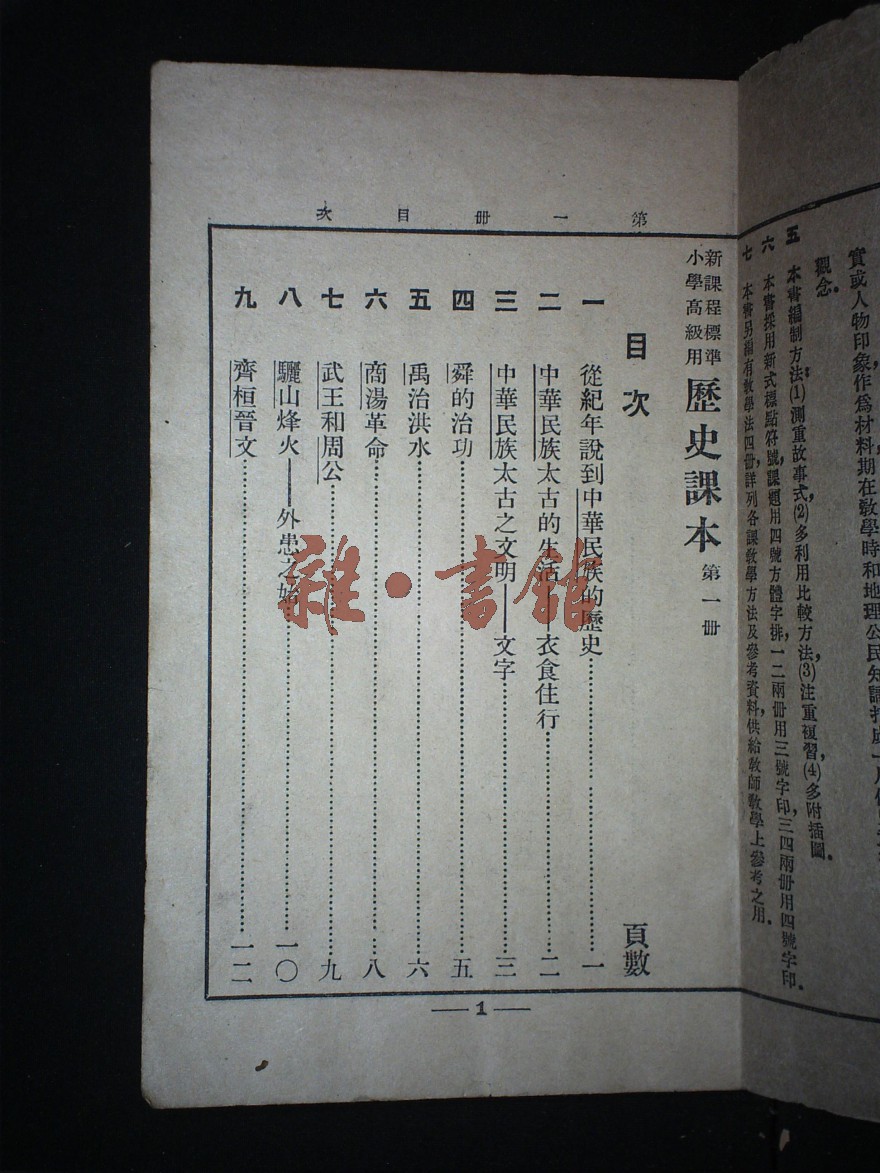 實或人物印象作爲材料,期在敎學時和地理公民知識打成一片
觀念.
五 本書編制方法:(1)測重故事式,(2)多利用比較方法,(3)注重複習,(4)多附插圖.
六 本書採用新式標點符號,課題用四號方體字排,一二兩册用三號字印,三四兩册用四號字印.
七 本書另編有敎學法四册,詳列各課敎學方法及參考資料,供給敎師敎學上參考之用.
第一册目次
新課程標準
小學高級用
歷史課本 第一册
目次 頁數
一 從紀年說到中華民族的歷史……一
二 中華民族太古的生活——衣食住行……二
三 中華民族太古之文明——文字……三
四 舜的治功……五
五 禹治洪水……六
六 商湯革命……八
七 武王和周公……九
八 驪山烽火——外患之始……一〇
九 齊桓晉文……一二
—1—
雜·書館